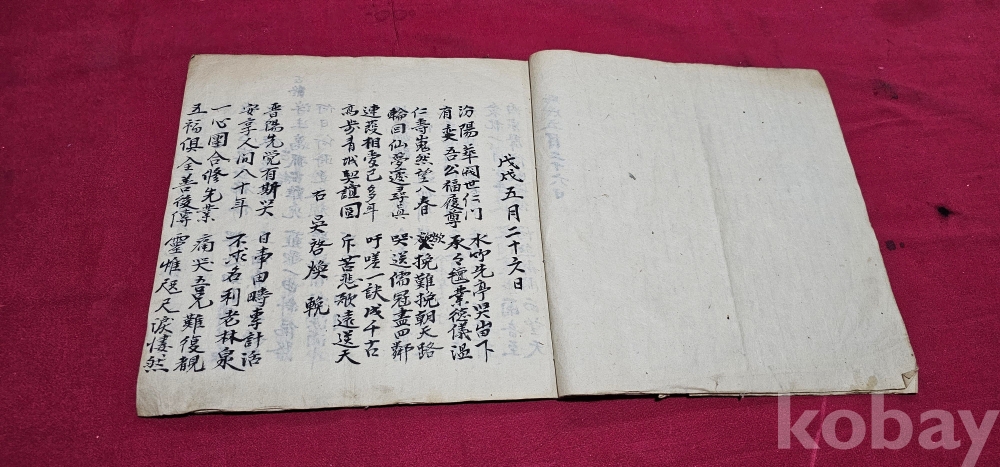 戊戌五月二十六日
汾陽華閥世仁門 水 先亭哭 下
有奕吾公福履尊 承々禮業德儀溫
仁壽嵬然望八春 歎挽難挽朝天路
輪回仙夢遽尋眞 哭送儒冠盡四鄰
連葭相愛已多年 吁嗟一訣成千古
高步青城契誼圓 斥苦悲歌遠送天
右 吳啓煥 輓
晋陽先覚有斯 日事田疇專計活
安享人间八十年 不求名利老林泉
一心團合修先業 痛哭吾兄難復覩
五福俱全善後傳 靈帷咫尺淚悽然
kobay